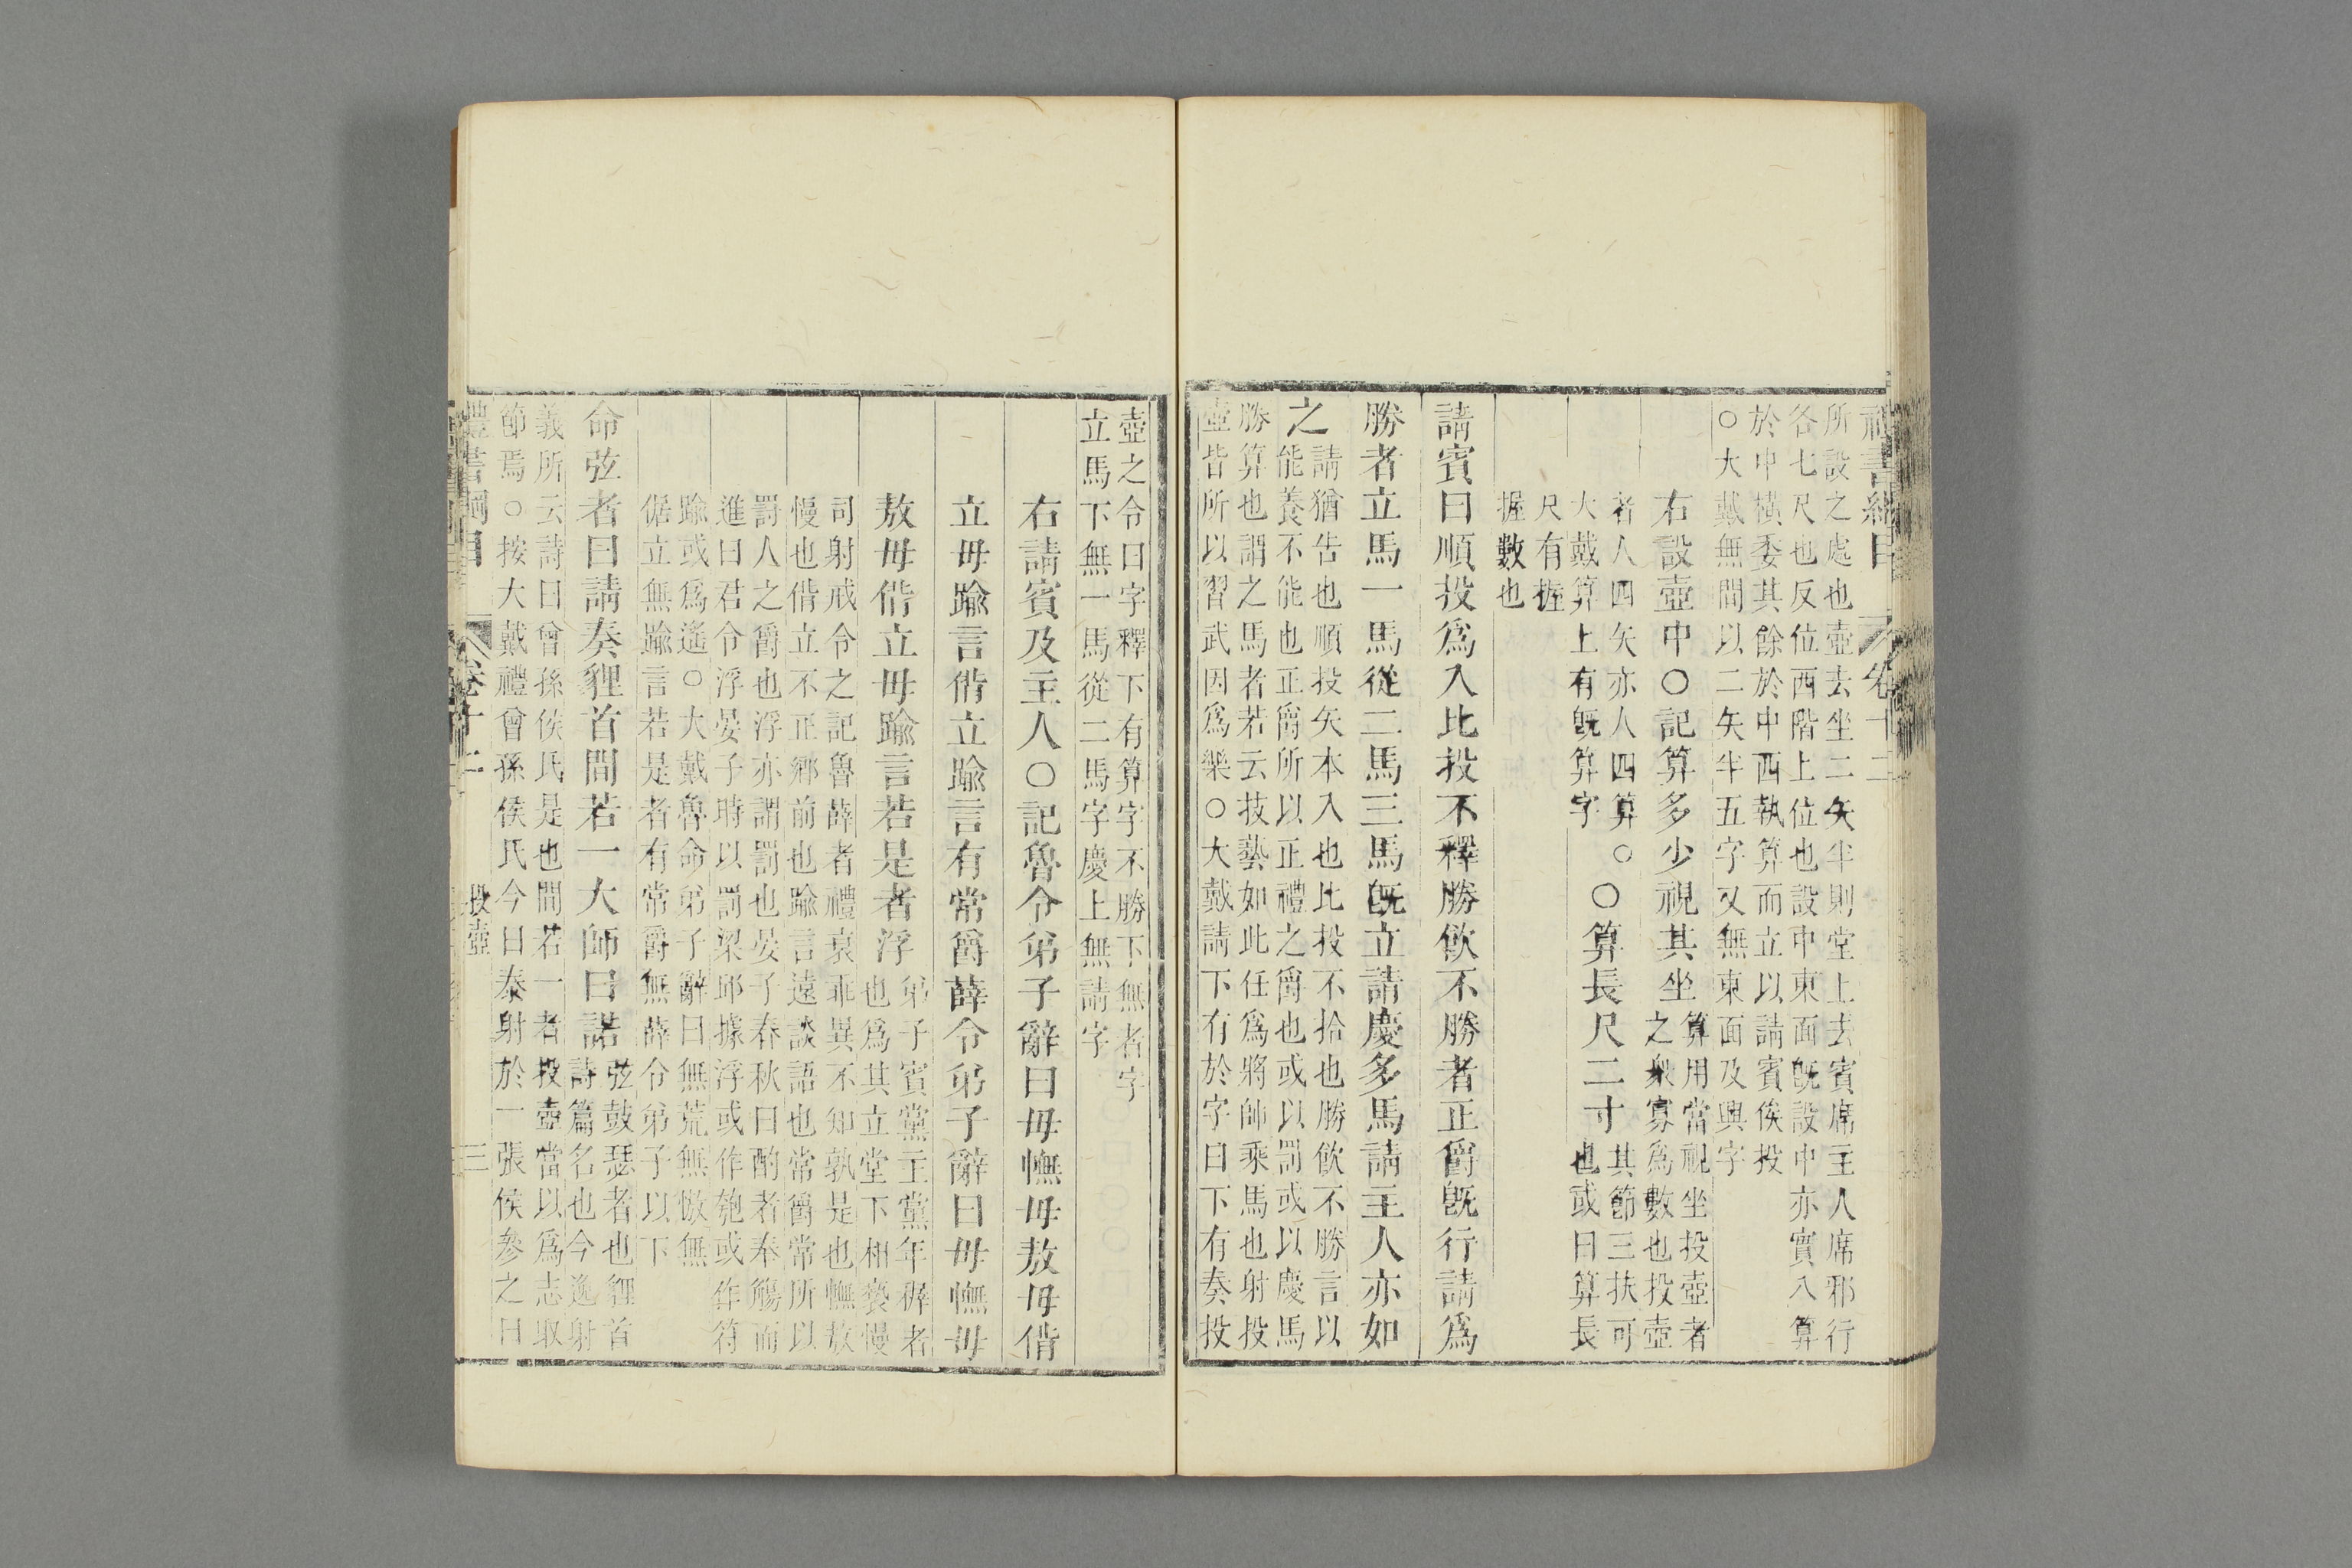 禮書綱目 卷十二
所設之處也壺去坐二矢半則堂上去賓席主人席邪行
各七尺也反位西階上位也設中東面旣設中亦實八算
於中橫委其餘於中西執算而立以請賓俟投
○大戴無間以二矢半五字又無東面及興字
右設壺中○記算多少視其坐
算用當視坐投壺者
之衆寡爲數也投壺
者人四矢亦人四算○
大戴算上有旣算字
○算長尺二寸
其節三扶可
也或曰算長
尺有握
握數也
請賓曰順投爲入比投不釋勝飮不勝者正爵旣行請爲
勝者立馬一馬從二馬三馬旣立請慶多馬請主人亦如
之
請猶告也順投矢本入也比投不拾也勝飮不勝言以
能養不能也正爵所以正禮之爵也或以罰或以慶馬
勝算也謂之馬者若云技藝如此任爲將帥乘馬也射投
壺皆所以習武因爲樂○大戴請下有於字曰下有奏投
壺之令曰字釋下有算字不勝下無者字
立馬下無一馬從二馬字慶上無請字
右請賓及主人○記魯令弟子辭曰毋憮毋敖毋偝
立毋踰言偝立踰言有常爵薛令弟子辭曰毋憮毋
敖毋偝立毋踰言若是者浮
弟子賓黨主黨年穉者
也爲其立堂下相褻慢
司射戒令之記魯薛者禮衰乖異不知孰是也憮敖
慢也偝立不正鄉前也踰言遠談語也常爵常所以
罰人之爵也浮亦謂罰也晏子春秋曰酌者奉觴而
進曰君令浮晏子時以罰梁邱據浮或作匏或作符
踰或爲遙○大戴魯命弟子辭曰無荒無慠無
倨立無踰言若是者有常爵無薛令弟子以下
命弦者曰請奏貍首間若一大師曰諾
弦鼓瑟者也貍首
詩篇名也今逸射
義所云詩曰曾孫侯氏是也間若一者投壺當以爲志取
節焉○按大戴禮曾孫侯氏今日泰射於一張侯參之曰
禮書綱目 卷十二 投壺 三